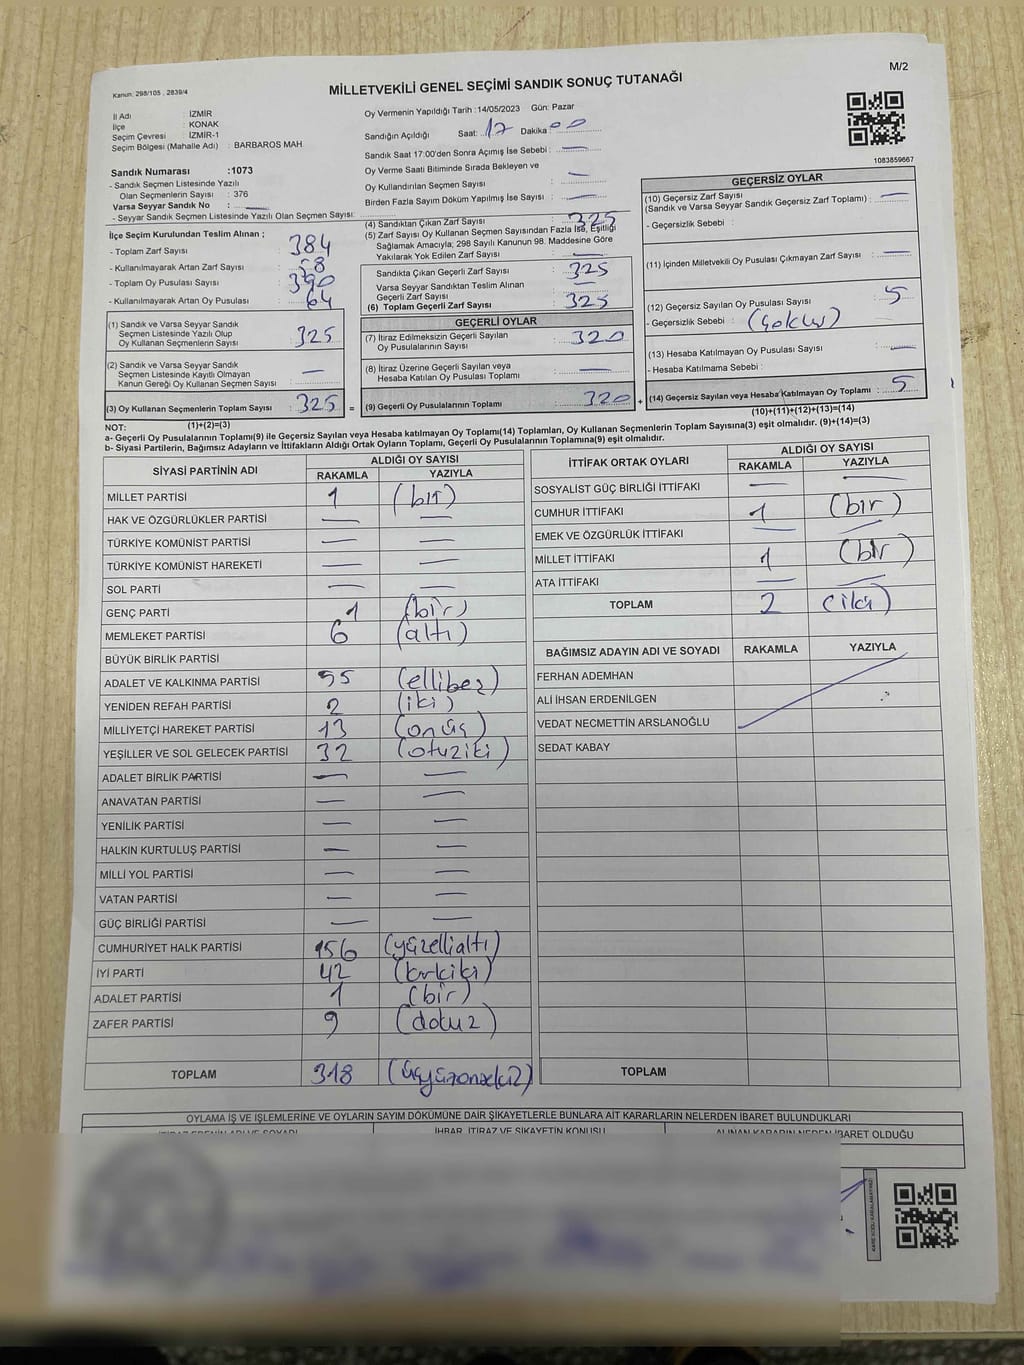 M/2
Kanun: 298/105 , 2839/4
MİLLETVEKİLİ GENEL SEÇİMİ SANDIK SONUÇ TUTANAĞI
İl Adı : İZMİR
İlçe : KONAK
Seçim Çevresi : İZMİR-1
Seçim Bölgesi (Mahalle Adı) : BARBAROS MAH.
Oy Vermenin Yapıldığı Tarih :14/05/2023 Gün: Pazar
Sandığın Açıldığı Saat: 17 Dakika 00
Sandık Saat 17:00'den Sonra Açımış İse Sebebi : —
Oy Verme Saati Bitiminde Sırada Bekleyen ve
Oy Kullandırılan Seçmen Sayısı : —
Birden Fazla Sayım Döküm Yapılmış İse Sayısı : —
1083859667
Sandık Numarası :1073
- Sandık Seçmen Listesinde Yazılı
Olan Seçmenlerin Sayısı : 376
Varsa Seyyar Sandık No : —
- Seyyar Sandık Seçmen Listesinde Yazılı Olan Seçmen Sayısı:
İlçe Seçim Kurulundan Teslim Alınan ;
- Toplam Zarf Sayısı : 384
- Kullanılmayarak Artan Zarf Sayısı : 58
- Toplam Oy Pusulası Sayısı : 390
- Kullanılmayarak Artan Oy Pusulası : 64
(1) Sandık ve Varsa Seyyar Sandık
Seçmen Listesinde Yazılı Olup
Oy Kullanan Seçmenlerin Sayısı : 325
(2) Sandık ve Varsa Seyyar Sandık
Seçmen Listesinde Kayıtlı Olmayan
Kanun Gereği Oy Kullanan Seçmen Sayısı : —
(3) Oy Kullanan Seçmenlerin Toplam Sayısı : 325 =
(4) Sandıktan Çıkan Zarf Sayısı : 325
(5) Zarf Sayısı Oy Kullanan Seçmen Sayısından Fazla İse, Eşitliği
Sağlamak Amacıyla; 298 Sayılı Kanunun 98. Maddesine Göre
Yakılarak Yok Edilen Zarf Sayısı : —
Sandıkta Çıkan Geçerli Zarf Sayısı : 325
Varsa Seyyar Sandıktan Teslim Alınan
Geçerli Zarf Sayısı : —
(6) Toplam Geçerli Zarf Sayısı : 325
GEÇERLİ OYLAR
(7) İtiraz Edilmeksizin Geçerli Sayılan
Oy Pusulalarının Sayısı : 320
(8) İtiraz Üzerine Geçerli Sayılan veya
Hesaba Katılan Oy Pusulası Toplamı : —
(9) Geçerli Oy Pusulalarının Toplamı : 320 +
GEÇERSİZ OYLAR
(10) Geçersiz Zarf Sayısı
(Sandık ve Varsa Seyyar Sandık Geçersiz Zarf Toplamı) : —
- Geçersizlik Sebebi :
(11) İçinden Milletvekili Oy Pusulası Çıkmayan Zarf Sayısı : —
(12) Geçersiz Sayılan Oy Pusulası Sayısı : 5
- Geçersizlik Sebebi :
(13) Hesaba Katılmayan Oy Pusulası Sayısı : —
- Hesaba Katılmama Sebebi :
(14) Geçersiz Sayılan veya Hesaba Katılmayan Oy Toplamı : 5
NOT: (1)+(2)=(3) (10)+(11)+(12)+(13)=(14)
a- Geçerli Oy Pusulalarının Toplamı(9) ile Geçersiz Sayılan veya Hesaba katılmayan Oy Toplamı(14) Toplamları, Oy Kullanan Seçmenlerin Toplam Sayısına(3) eşit olmalıdır. (9)+(14)=(3)
b- Siyasi Partilerin, Bağımsız Adayların ve İttifakların Aldığı Ortak Oyların Toplamı, Geçerli Oy Pusulalarının Toplamına(9) eşit olmalıdır.
SİYASİ PARTİNİN ADI ALDIĞI OY SAYISI
RAKAMLA YAZIYLA
MİLLET PARTİSİ 1 (bir)
HAK VE ÖZGÜRLÜKLER PARTİSİ — —
TÜRKİYE KOMÜNİST PARTİSİ — —
TÜRKİYE KOMÜNİST HAREKETİ — —
SOL PARTİ — —
GENÇ PARTİ 1 (bir)
MEMLEKET PARTİSİ 6 (altı)
BÜYÜK BİRLİK PARTİSİ
ADALET VE KALKINMA PARTİSİ 55 (ellibeş)
YENİDEN REFAH PARTİSİ 2 (iki)
MİLLİYETÇİ HAREKET PARTİSİ 13 (onüç)
YEŞİLLER VE SOL GELECEK PARTİSİ 32 (otuziki)
ADALET BİRLİK PARTİSİ — —
ANAVATAN PARTİSİ — —
YENİLİK PARTİSİ — —
HALKIN KURTULUŞ PARTİSİ — —
MİLLİ YOL PARTİSİ — —
VATAN PARTİSİ — —
GÜÇ BİRLİĞİ PARTİSİ — —
CUMHURİYET HALK PARTİSİ 156 (yüzellialtı)
İYİ PARTİ 42 (kırkiki)
ADALET PARTİSİ 1 (bir)
ZAFER PARTİSİ 9 (dokuz)
TOPLAM 318 (üçyüzonsekiz)
İTTİFAK ORTAK OYLARI ALDIĞI OY SAYISI
RAKAMLA YAZIYLA
SOSYALİST GÜÇ BİRLİĞİ İTTİFAKI — —
CUMHUR İTTİFAKI 1 (bir)
EMEK VE ÖZGÜRLÜK İTTİFAKI — —
MİLLET İTTİFAKI 1 (bir)
ATA İTTİFAKI — —
TOPLAM 2 (iki)
BAĞIMSIZ ADAYIN ADI VE SOYADI RAKAMLA YAZIYLA
FERHAN ADEMHAN
ALİ İHSAN ERDENİLGEN
VEDAT NECMETTİN ARSLANOĞLU
SEDAT KABAY
TOPLAM
OYLAMA İŞ VE İŞLEMLERİNE VE OYLARIN SAYIM DÖKÜMÜNE DAİR ŞİKAYETLERLE BUNLARA AİT KARARLARIN NELERDEN İBARET BULUNDUKLARI
İTİRAZ EDENİN ADI VE SOYADI İHBAR, İTİRAZ VE ŞİKAYETİN KONUSU ALINAN KARARIN NEDEN İBARET OLDUĞU